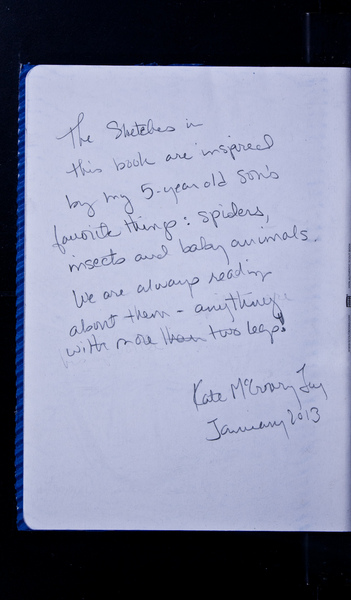 The Sketches in
this book are inspired
by my 5-year old son's
favorite things: spiders,
insects and baby animals.
We are always reading
about them - anything
with more than two legs!
Kate
January 2013